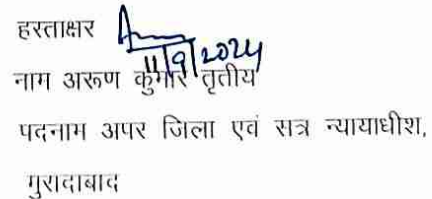 हस्ताक्षर
11/9/2024
नाम अरूण कुमार तृतीय
पदनाम अपर जिला एवं सत्र न्यायाधीश,
मुरादाबाद